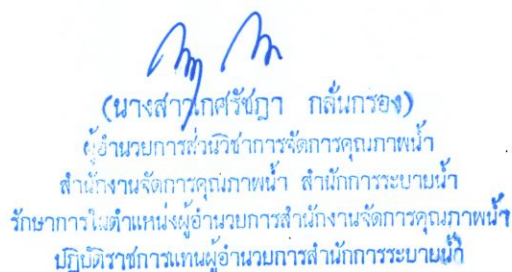 (นางสาวเกศรัชฎา กลั่นกรอง)
ผู้อำนวยการส่วนวิชาการจัดการคุณภาพน้ำ
สำนักงานจัดการคุณภาพน้ำ สำนักการระบายน้ำ
รักษาการในตำแหน่งผู้อำนวยการสำนักงานจัดการคุณภาพน้ำ
ปฏิบัติราชการแทนผู้อำนวยการสำนักการระบายน้ำ